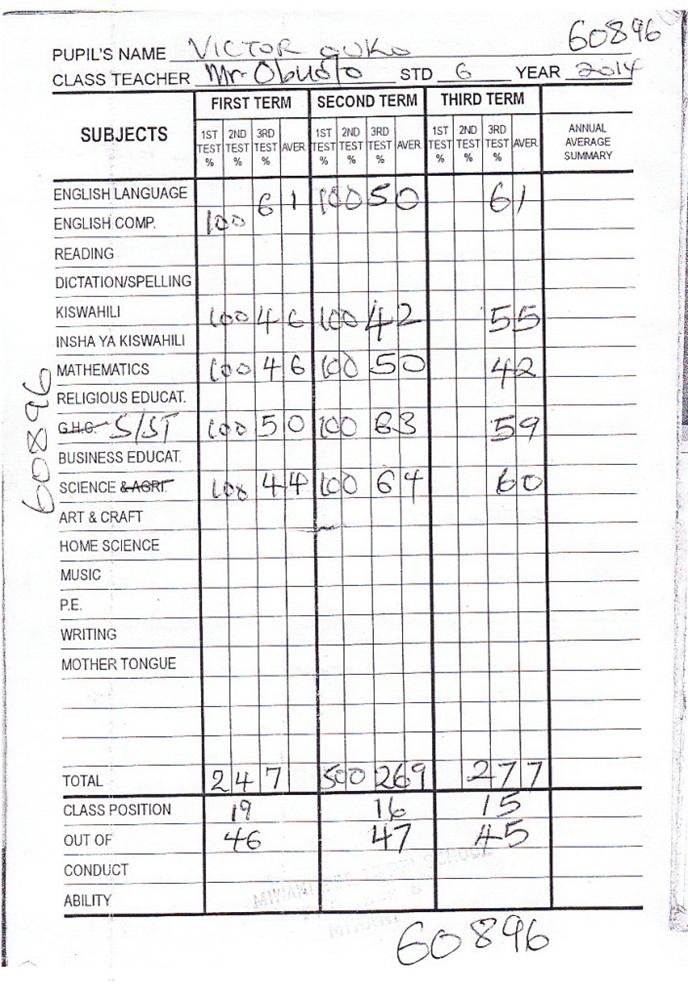 60896
PUPIL'S NAME VICTOR OUKO
CLASS TEACHER Mr Obudo STD 6 YEAR 2014
SUBJECTS FIRST TERM SECOND TERM THIRD TERM ANNUAL AVERAGE SUMMARY
1ST TEST % 2ND TEST % 3RD TEST % AVER. 1ST TEST % 2ND TEST % 3RD TEST % AVER. 1ST TEST % 2ND TEST % 3RD TEST % AVER.
ENGLISH LANGUAGE 61 100 50 61
ENGLISH COMP. 100
READING
DICTATION/SPELLING
KISWAHILI 100 46 100 42 55
INSHA YA KISWAHILI
MATHEMATICS 100 46 100 50 42
RELIGIOUS EDUCAT.
G.H.C. S/ST 100 50 100 63 59
BUSINESS EDUCAT.
SCIENCE & AGRI. 100 44 100 64 60
ART & CRAFT
HOME SCIENCE
MUSIC
P.E.
WRITING
MOTHER TONGUE
TOTAL 247 500 269 277
CLASS POSITION 19 16 15
OUT OF 46 47 45
CONDUCT
ABILITY
60896
60896